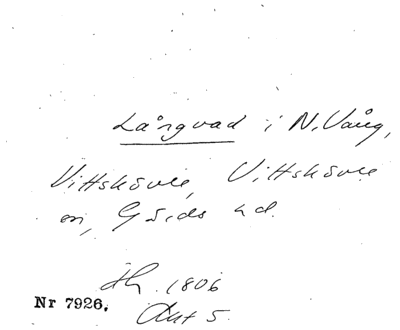 Långvad i N. Vång,
Vittskövle, Vittskövle
sn, Gärds hd.
1806
Nr 7926.
Akt 5.